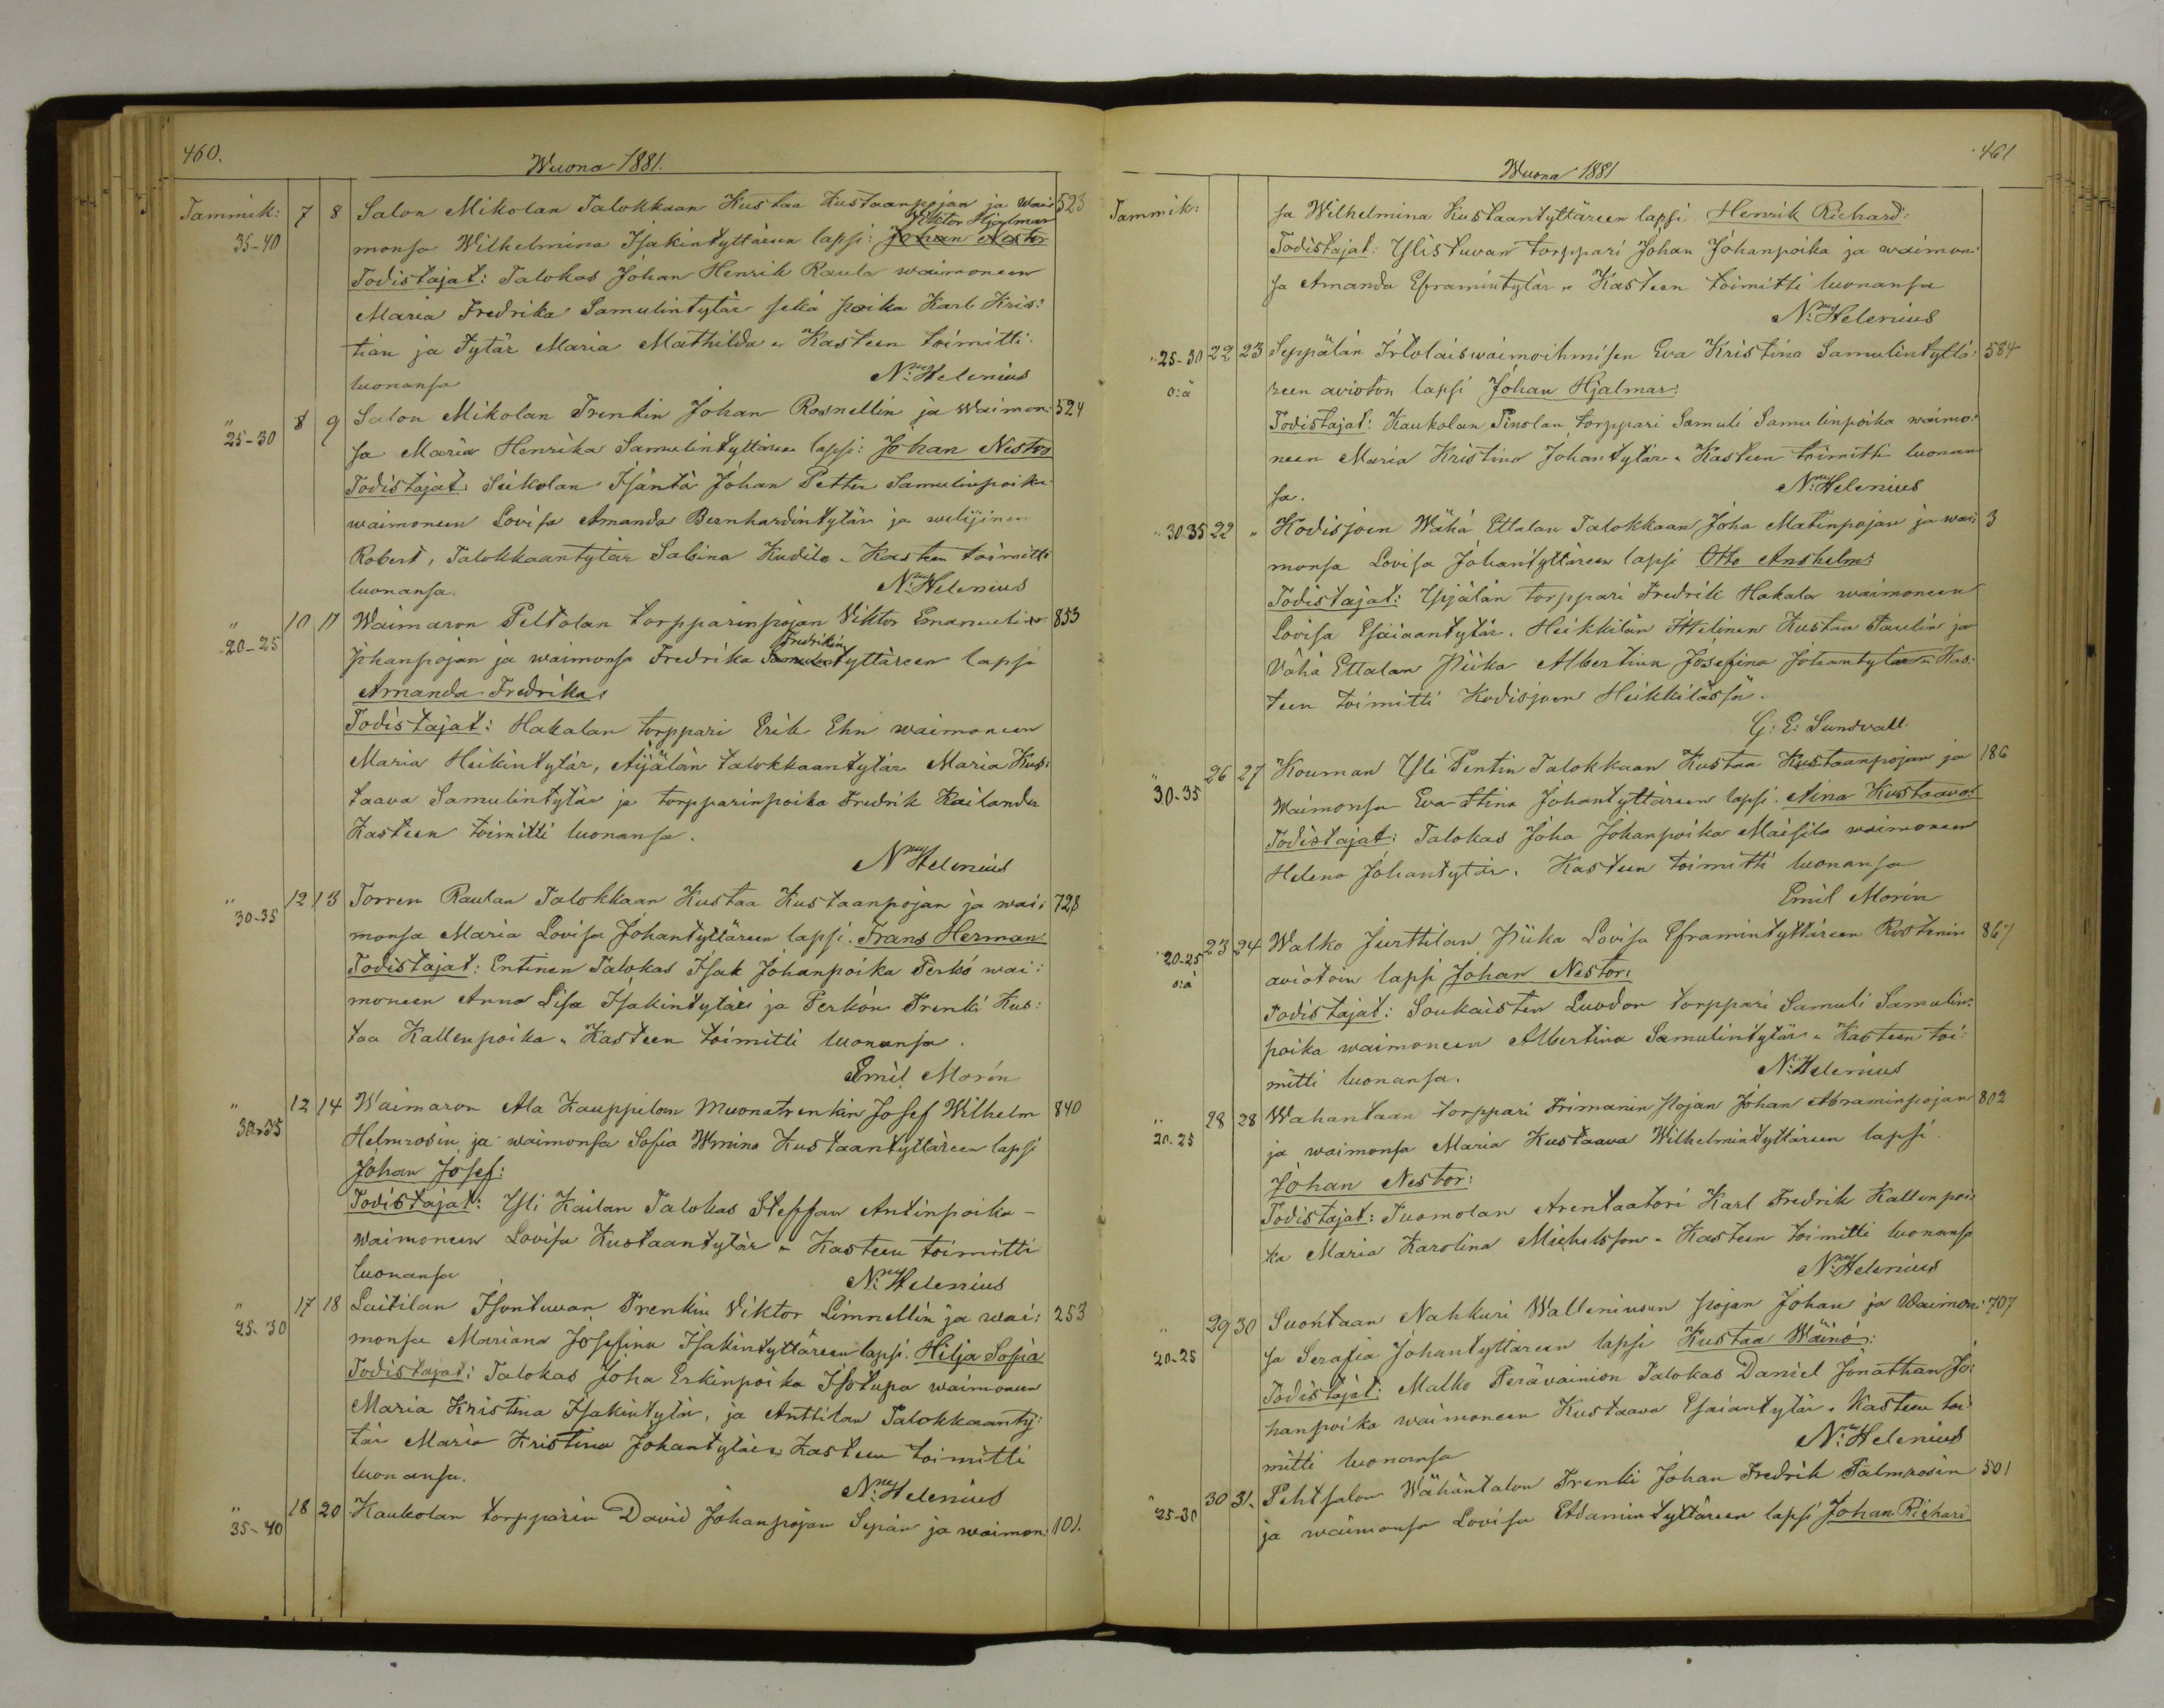 460.
Wuona 1881.
Tammik: 7 8 Salon Mikolan Talokkaan Kustaa Kustaanpojan ja wai: 523
Viktor Hjalmar
35-40 monsa Wilhelmina Isakintyttären lapsi: Johan Nestor
Todistajat: Talokas Johan Henrik Raula waimoneen
Maria Fredrika Samulintytär sekä poika Karl Kris:
tian ja tytär Maria Mathilda „ Kasteen toimitti
luonansa N:. Helenius
„ 25-30 8 9 Salon Mikolan Trenkin Johan Rosnellin ja Waimon: 524
sa Maria Henrika Samulintyttären lapsi: Johan Nestor
Todistajat: Seikolan Isäntä Johan Petter Samulinpoika
waimoneen Lovisa Amanda Bernhardintytär ja welijinen
Robert, Talokkaantytär Sabina Kudila „ Kasteen toimitti
luonansa. N:. Helenius
„ 20-25 10 11 Waimaron Peltolan torpparinpojan Viktor Emanuelin 853
Fredrikin
Johanpojan ja waimonsa Fredrika Samulintyttäreen lapsi
Amanda Fredrika:
Todistajat: Hakalan torppari Erik Ehn waimoneen
Maria Heikintytär, Äijälän talokkaantytär Maria Kus:
taava Samulintytär ja torpparinpoika Fredrik Kailander
Kasteen toimitti luonansa.
N Helenius
„ 30-35 12 13 Torren Raulan Talokkaan Kustaa Kustaanpojan ja wai: 728
monsa Maria Lovisa Johantyttäreen lapsi. Frans Herman:
Todistajat: Entinen Talokas Isak Johanpoika Perkö wai:
moneen Anna Lisa Isakintytär ja Perkön Trenki Kus:
taa Kallenpoika „ Kasteen toimitti luonansa.
Emil Morin
„ 30-35 12 14 Waimaron Ala Kauppilan Muonatrenkin Josef Wilhelm 840
Helmrosin ja waimonsa Sofia Wmina Kustaantyttäreen lapsi
Johan Josef:
Todistajat: Yli Kailan Talokas Steffan Antinpoika -
waimoneen Lovisa Kustaantytär „ Kasteen toimitti
luonansa N:. Helenius
„ 25-30 17 18 Laitilan Isontuvan Trenkin Viktor Linnellin ja wai: 253
monsa Mariana Josefina Isakintyttäreen lapsi. Hilja Sofia
Todistajat: Talokas Joha Erkinpoika Isotupa waimoneen
Maria Kristina Isakintytär, ja Anttilan Talokkaanty:
tär Maria Kristina Johantytär „ Kasteen toimitti
luonansa. N:. Helenius
„ 35-40 18 20 Kaukolan torpparin David Johanpojan Sepän ja waimon: 101.
461
Wuona 1881
Tammik: sa Wilhelmina Kustaantyttäreen lapsi Henrik Richard:
Todistajat: Ylistuvan torppari Johan Johanpoika ja waimon:
sa Amanda Eframintytär „ Kasteen toimitti luonansa
N:. Helenius
„ 25-30 22 23 Seppälän Irtolaiswaimoihmisen Eva Kristina Samulintyttä: 584
o:ä reen avioton lapsi Johan Hjalmar:
Todistajat: Kaukolan Pinolan torppari Samuli Samulinpoika waimo:
neen Maria Kristina Johantytär „ Kasteen toimitti luonan
sa. N:. Helenius
„ 30-35 22 „ Hodisjoen Wähä Ettalan Talokkaan Joha Matinpojan ja wai: 3
monsa Lovisa Johantyttäreen lapsi Otto Anshelm:
Todistajat: Ypjälän torppari Fredrik Hakala waimoneen
Lovisa Esaiaantytär. Heikkilän Itselinen Kustaa Paulin ja
Vähä Ettalan Piika Albertina Josefina Johantytär „ Kas:
teen toimitti Kodisjoen Heikkilässä.
G: E: Sundvall
„ 30-35 26 27 Kouman Yli Pentin Talokkaan Kustaa Kustaanpojan ja 186
Waimonsa Eva Stina Johantyttäreen lapsi. Aina Kustaava:
Todistajat: Talokas Joha Johanpoika Maisila waimoneen
Helena Johantytär. Kasteen toimitti luonansa
Emil Morin
„ 20-25 23 24 Walko Jurttilan Piika Lovisa Eframintyttäreen Rostenin 867
o:ä aviotoin lapsi Johan Nestor:
Todistajat: Soukaisten Luodon torppari Samuli Samulin:
poika waimoneen Albertina Samulintytär „ Kasteen toi:
mitti luonansa. N: Helenius
„ 20-25 28 28 Wahantaan torppari Frimanin Pojan Johan Abraminpojan 802
ja waimonsa Maria Kustaava Wilhelmintyttäreen lapsi.
Johan Nestor:
Todistajat: Tuomolan Arentaatori Karl Fredrik Kallenpoi:
ka Maria Karolina Michelsson „ Kasteen toimitti luonansa
N:. Helenius
„ 20-25 29 30 Suontaan Nahkuri Walleniusen pojan Johan ja Waimon: 707
sa Serafia Johantyttäreen lapsi Kustaa Wäinö:
Todistajat: Malko Perävainion Talokas Daniel Jonathan Jo:
hanpoika waimoneen Kustaava Esaiantytär „ Kasteen toi:
mitti luonansa N:. Helenius
„ 25-30 30 31. Pehtsalon Wähäntalon Trenki Johan Fredrik Palmrosin 501
ja waimonsa Lovisa Adamintyttäreen lapsi Johan Richard